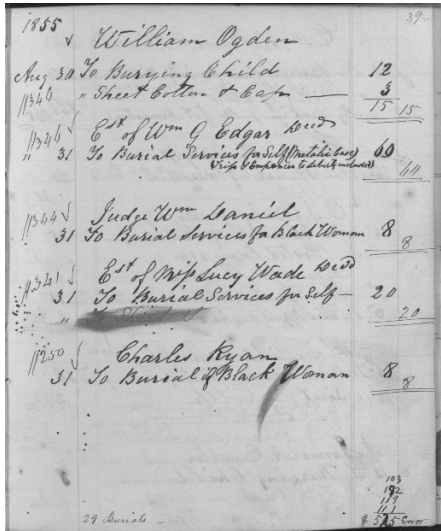 39
1855
✓ William Ogden
Aug 30 To Burying Child 12
11340 " Sheet Cotton & Cap — 3
15 15
✓ Est of Wm G Edgar Decd
" 31 To Burial Services for Self (Metalic Case) 60
60
11344 ✓ Judge Wm Daniel
31 To Burial Services for Black Woman 8
8
11341 ✓ Est of Miss Lucy Wade Decd
31 To Burial Services for Self — 20
" 20
11250 ✓ Charles Ryan
31 To Burial of Black Woman 8
8
103
192
119
111
29 Burials $ 525 Error